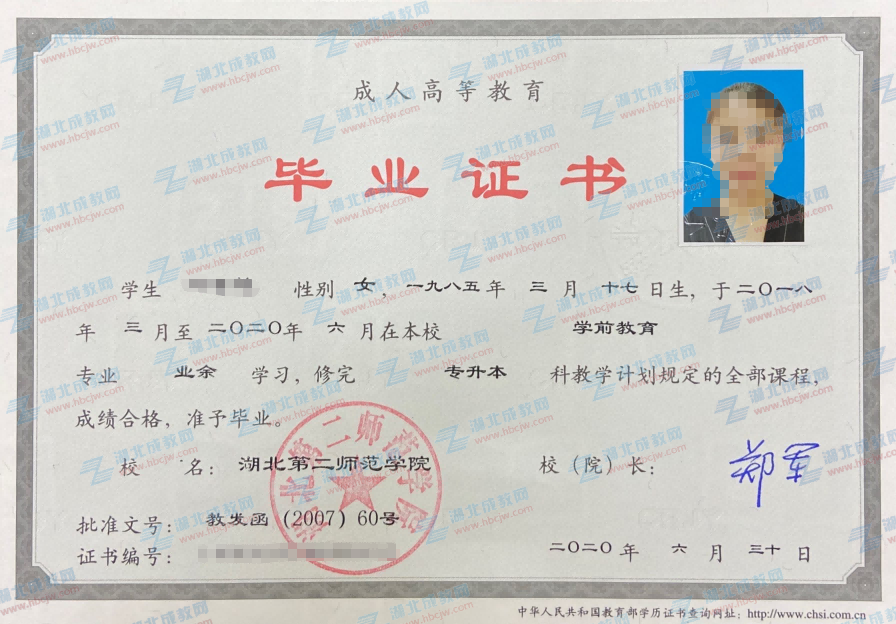 成人高等教育
毕业证书
学生 性别 女，一九八五年 三 月 十七日生，于二〇一八
年 三 月至 二〇二〇年 六 月在本校 学前教育
专业 业余 学习，修完 专升本 科教学计划规定的全部课程，
成绩合格，准予毕业。
校 名：湖北第二师范学院 校（院）长：郑军
批准文号：教发函（2007）60号
证书编号： 二〇二〇 年 六 月 三十 日
中华人民共和国教育部学历证书查询网址：http://www.chsi.com.cn
湖北第二师范学院
湖北成教网
www.hbcjw.com